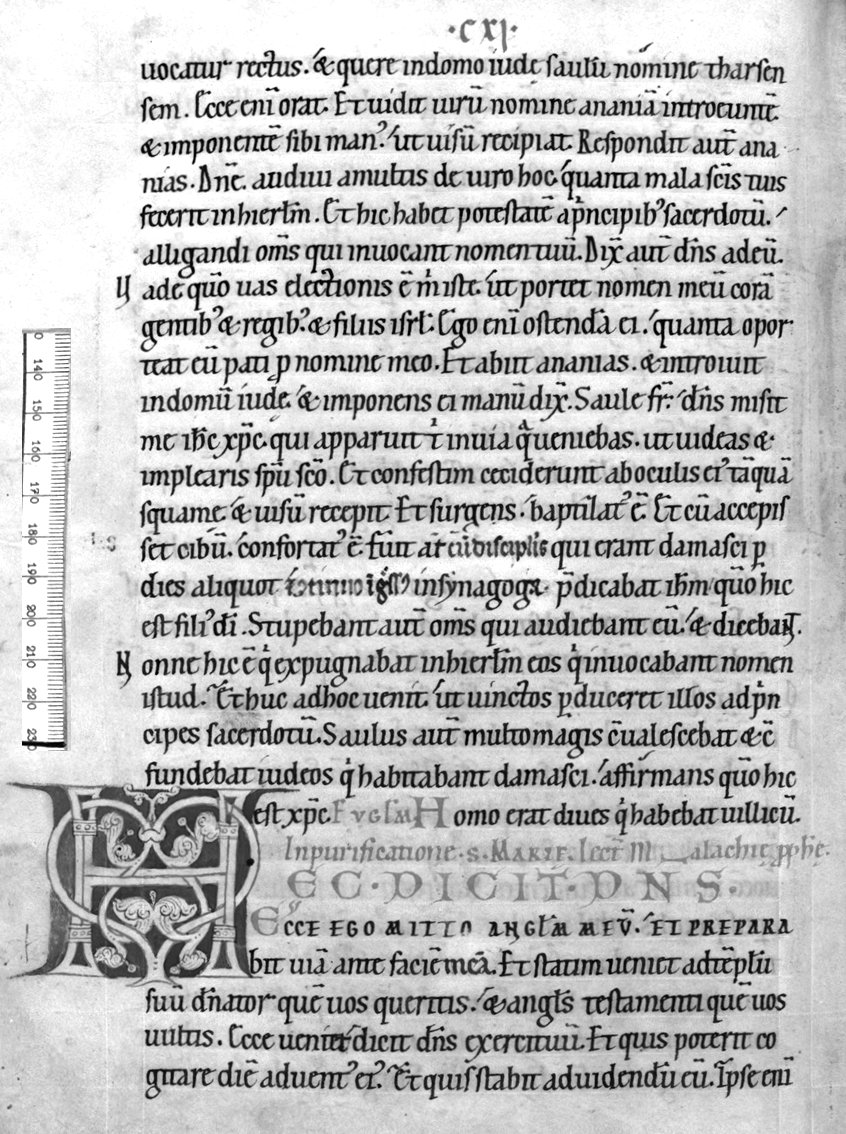 ·CXI·
uocatur rectus. & quere indomo iude saulū nomine tharsen
sem. Ecce eni̅ orat. Et uidit uirū nomine ananiā introeuntē
& imponentē sibi man᾽. ut uisū recipiat. Respondit aut̅ ana
nias. Dn̅e. audiui amultis de uiro hoc. quanta mala sc̅is tuis
fecerit inhierl̅m. Et hic habet potestatē apͥncipib᾽ sacerdotū.
alligandi om̅s qui inuocant nomen tuū. Dix̅ aut̅ dn̅s adeū.
Uade qūo uas electionis ē mͥ iste. ut portet nomen meū corā
gentib᾽ & regib᾽. & filiis isrl̅. Ego eni̅ ostendā ei. quanta opor
teat eū pati ꝓ nomine meo. Et abiit ananias. & introiuit
indomū iude. & imponens ei manū dix̅. Saule fr̅. dn̅s misit
me ih̅c xp̅c. qui apparuit tͥ inuia qͣ ueniebas. ut uideas &
implearis sp̅u sc̅o. Et confestim ceciderunt aboculis ei᾽ tāquā
squame. & uisū recepit. Et surgens. baptizat᾽ ē. Et cū accepis
set cibū. confortat᾽ ē. fuit aut̅ cū discipl̅is qui erant damasci ꝑ
dies aliquot. insynagogis p̅dicabat ih̅m quo̅ hic
est fili᾽ di̅. Stupebant aut̅ om̅s qui audiebant eū. & dicebant.
Nonne hic ē qͥ expugnabat inhierl̅m eos qͥ inuocabant nomen
istud. Et huc adhoc uenit. ut uinctos ꝑduceret illos adpͥn
cipes sacerdotū. Saulus aut̅ multo magis c̅ualescebat & c̅
fundebat iudeos qͥ habitabant damasci. affirmans quo̅ hic
est xp̅c. EVGLM Homo erat diues qͥ habebat uillicū.
Inpurificatione. S. MARIE. lect̅ Malachie pphe̅.
HEC. DICIT. DNS.
ECCE EGO MITTO ANGLM MEV̅. ET PREPARA
bit uiā ante faciē meā. Et statim ueniet adtēplū
suū dn̅ator quē uos queritis. & angl̅s testamenti quē uos
uultis. Ecce uenit dicit dn̅s exercituū. Et quis poterit co
gitare diē aduent᾽ ei᾽. Et quis stabit aduidendū eū. Ipse eni̅
0
140
150
160
170
180
190
200
210
220
230